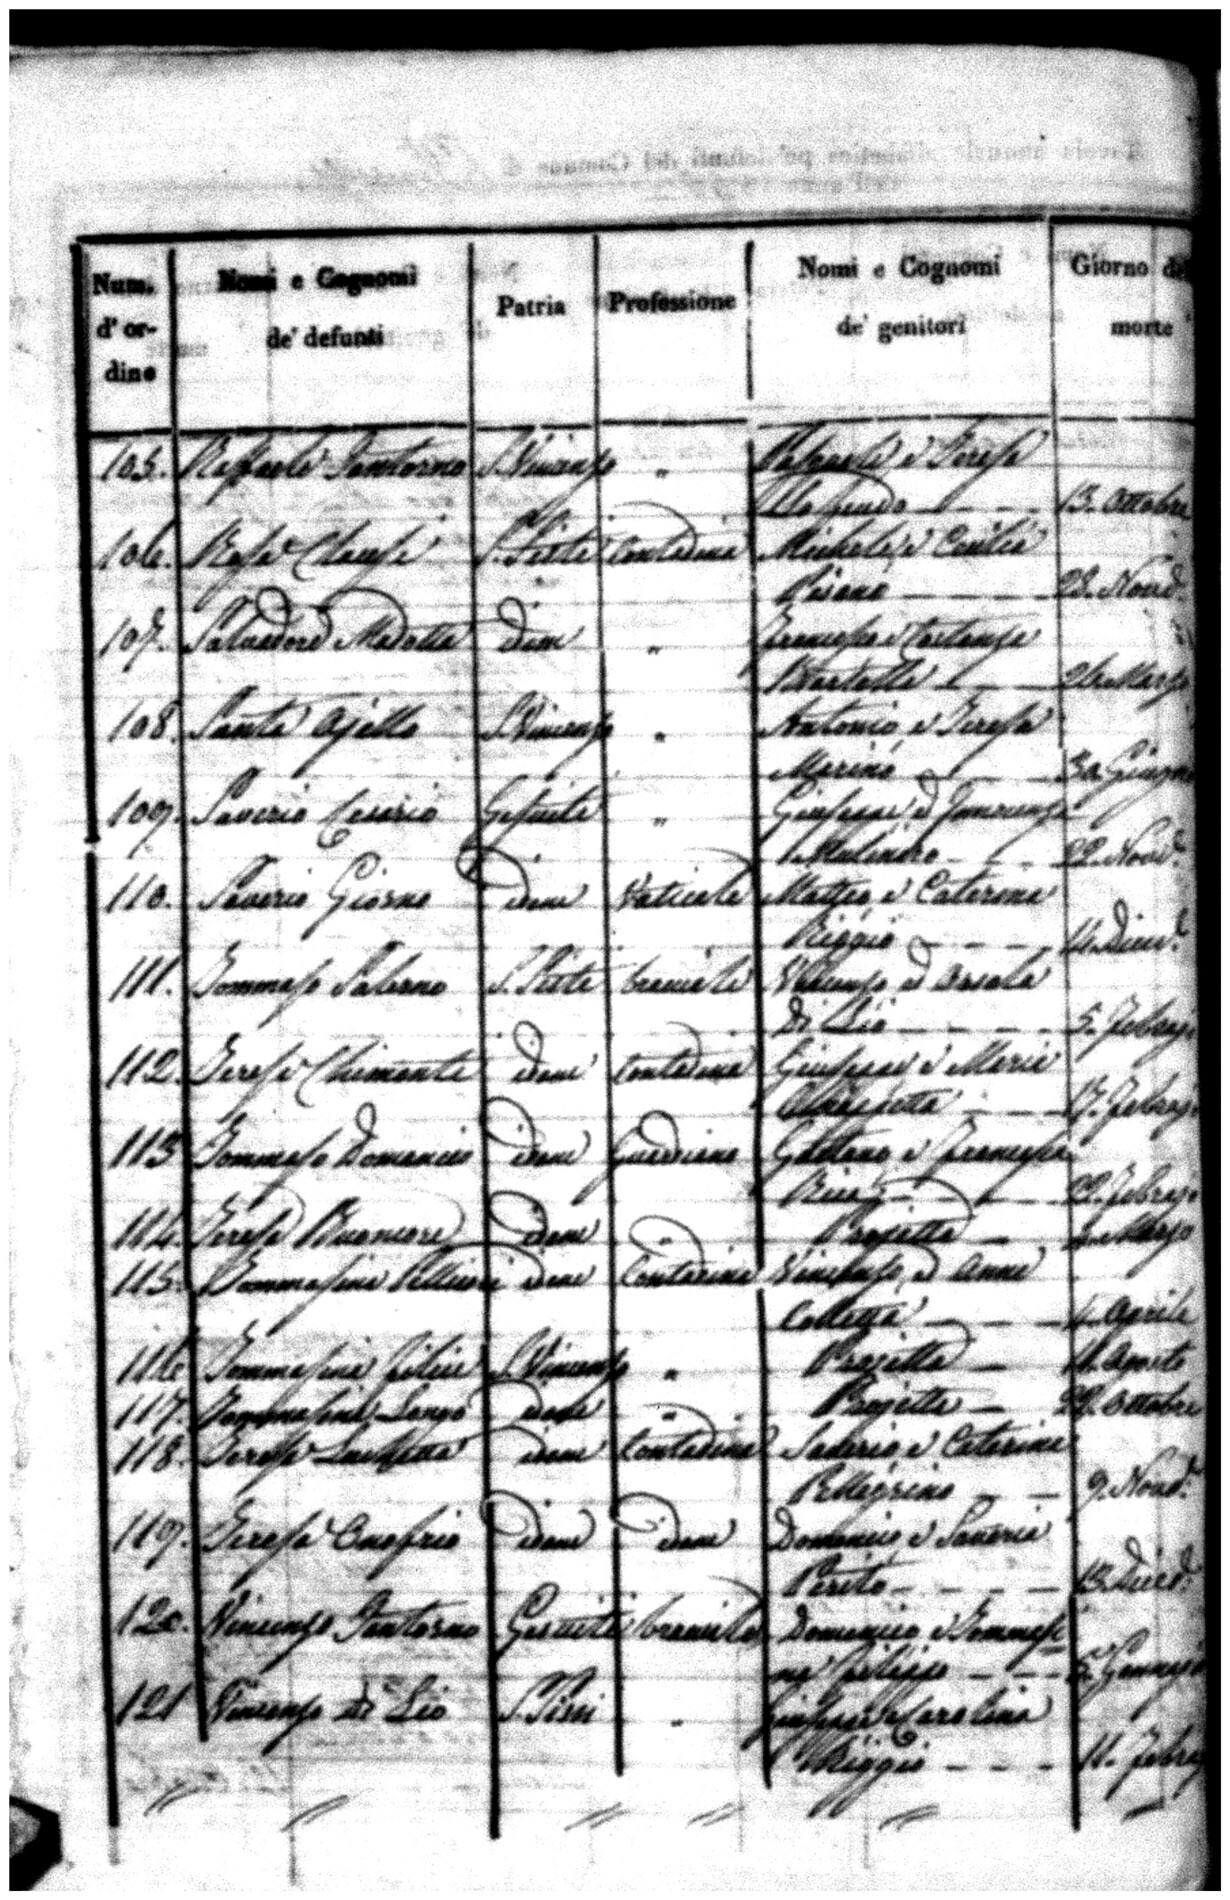 Num. d'or- dine
Nomi e Cognomi de' defunti
Patria
Professione
Nomi e Cognomi de' genitori
Giorno de morte
105. Raffaele Santorno S. Vincenzo " Raffaele e Teresa
13. Ottobre
106. Rosa S. Sisti Contadina Michele e Cecilia
Pisano 28. Novb.e
107. Salvadore Madotta idem " Francesco e Costanza
Martello 24. Marzo
108. Santa Ajello S. Vincenzo " Antonio e Teresa
Marino 30. Giugno
109. Saverio Cesario Gesuiti " Giuseppe e
22. Novb.e
110. Saverio Giorno idem Vaticale Matteo e Caterina
Reggio 11. Dicb.e
111. Tommaso Salerno S. Sisti bracciale Vincenzo ed Orsola
Di Lio 5. Febrajo
112. Teresa Chimenti idem Contadina Giuseppe e Maria
17. Febrajo
113 Tommaso Domanico idem Guardiano Gaetano e Francesca
Ricca 22. Febrajo
114. Teresa Buoncore idem " Projetta Marzo
115. Tommasina Pellicori idem Contadina Vincenzo ed Anna
Colletta 4. Aprile
116. Tommasina Filice S. Vincenzo " Projetta 11. Agosto
117. Tommasina Longo idem " Projetta 22. Ottobre
118. Teresa Luchetta idem Contadina Saverio e Caterina
Pellegrino 9. Novb.e
119. Teresa Onofrio idem idem Domenico e Saveria
Perito 13. Dicb.e
120. Vincenzo Santorno Gesuiti bracciale Domenico e Tommasi
na Filippo Gennajo
121 Vincenzo di Lio S. Sisti " Giuseppe e Carolina
Reggio 11. Febra